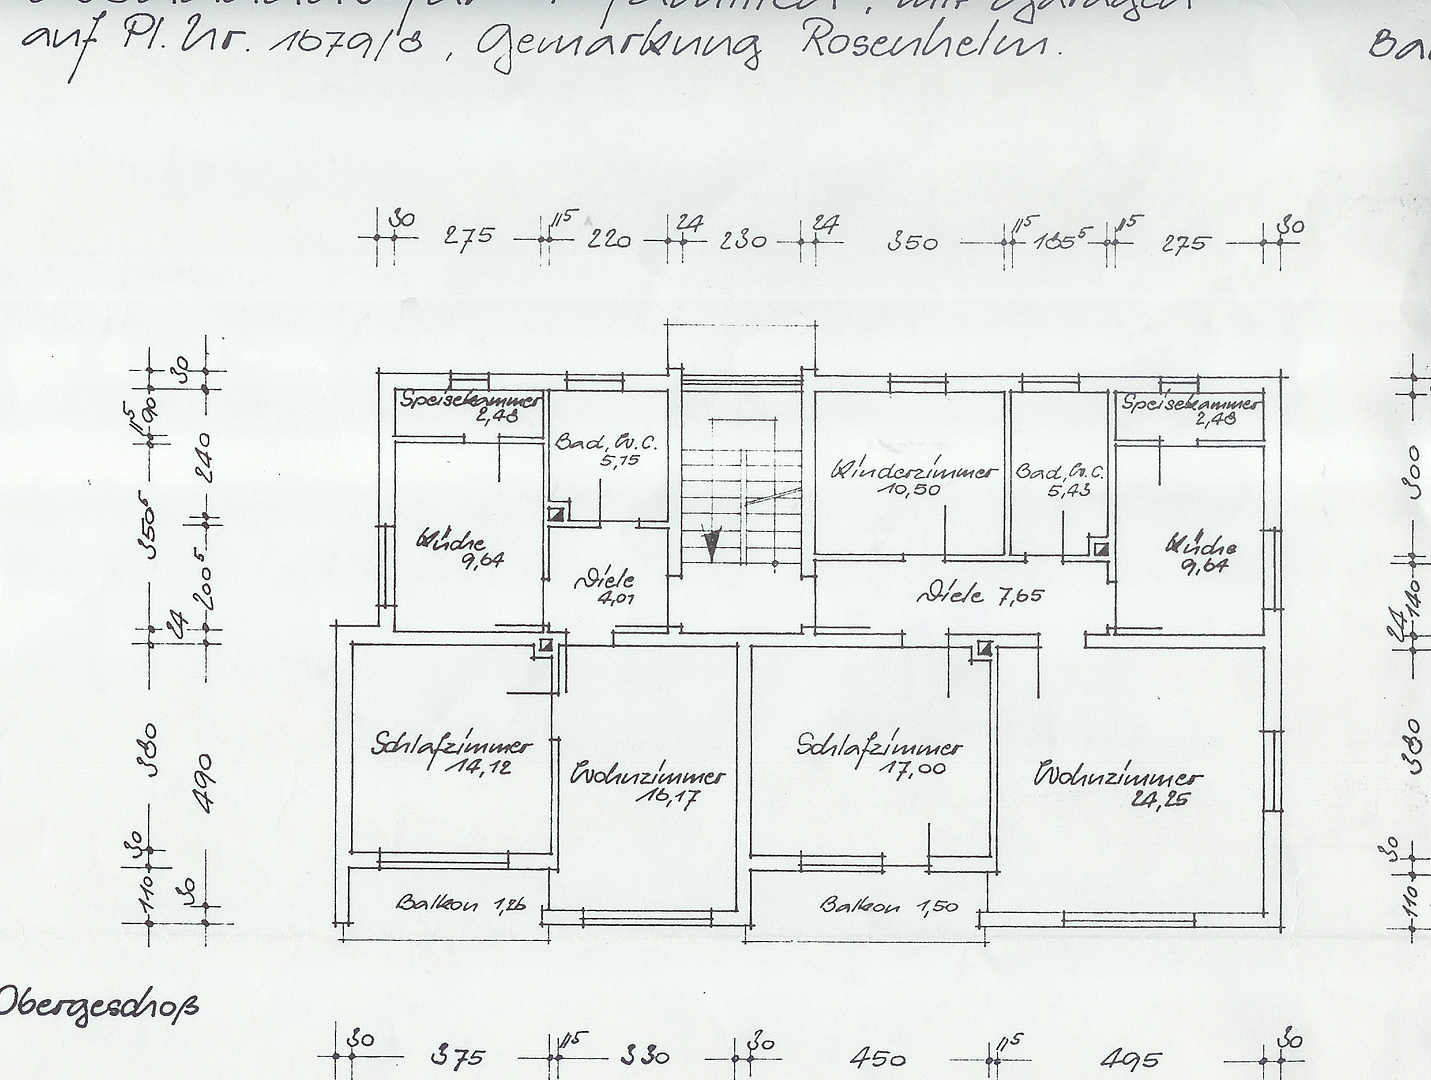 auf Pl. Nr. 1679/8, Gemarkung Rosenheim.
30 275 11⁵ 220 24 230 24 350 11⁵ 185⁵ 11⁵ 275 30
30
11⁵ 90
240
350⁵
200⁵
24
380
490
30
110
30
Speisekammer
2,48
Bad, W.C.
5,15
Küche
9,64
Diele
4,01
Kinderzimmer
10,50
Bad, W.C.
5,43
Speisekammer
2,48
Küche
9,64
Diele 7,65
Schlafzimmer
14,12
Wohnzimmer
16,17
Schlafzimmer
17,00
Wohnzimmer
24,25
Balkon 1,26
Balkon 1,50
300
140
24
380
30
110
Obergeschoß
30 375 11⁵ 330 30 450 11⁵ 495 30